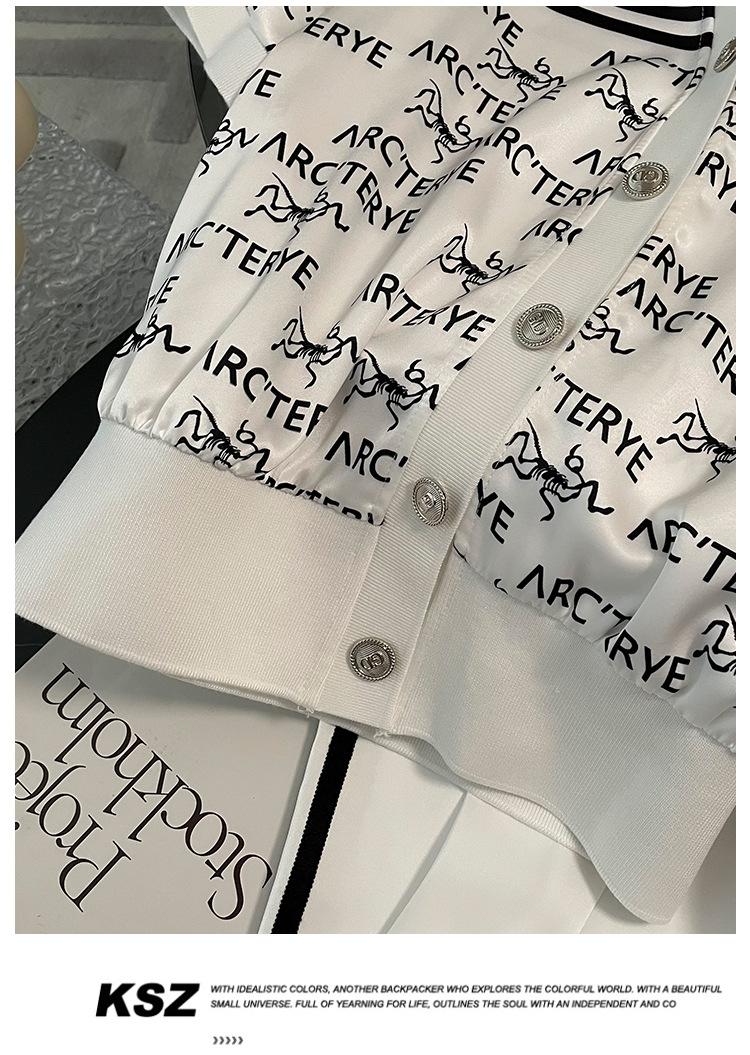 ERYE
YE
ARC'TE
ARC'TE
YE
ARC'TERYE
ARC'TERY
ARC'TERYE
ARC
ARC'TERYE
ERYE
ARC'TER
ARTERYE
ARC'TER
ARC'
'TERYE
YE
ARC'T
ARC'T
RYE
Project
Stockholm
KSZ
WITH IDEALISTIC COLORS, ANOTHER BACKPACKER WHO EXPLORES THE COLORFUL WORLD. WITH A BEAUTIFUL
SMALL UNIVERSE. FULL OF YEARNING FOR LIFE, OUTLINES THE SOUL WITH AN INDEPENDENT AND CO
›››››